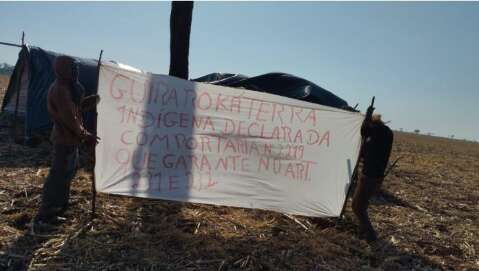 GUIRAROKA TERRA
INDÍGENA DECLARADA
COM PORTARIA N 3.219
QUE GARANTE NU ART.
231 E 232